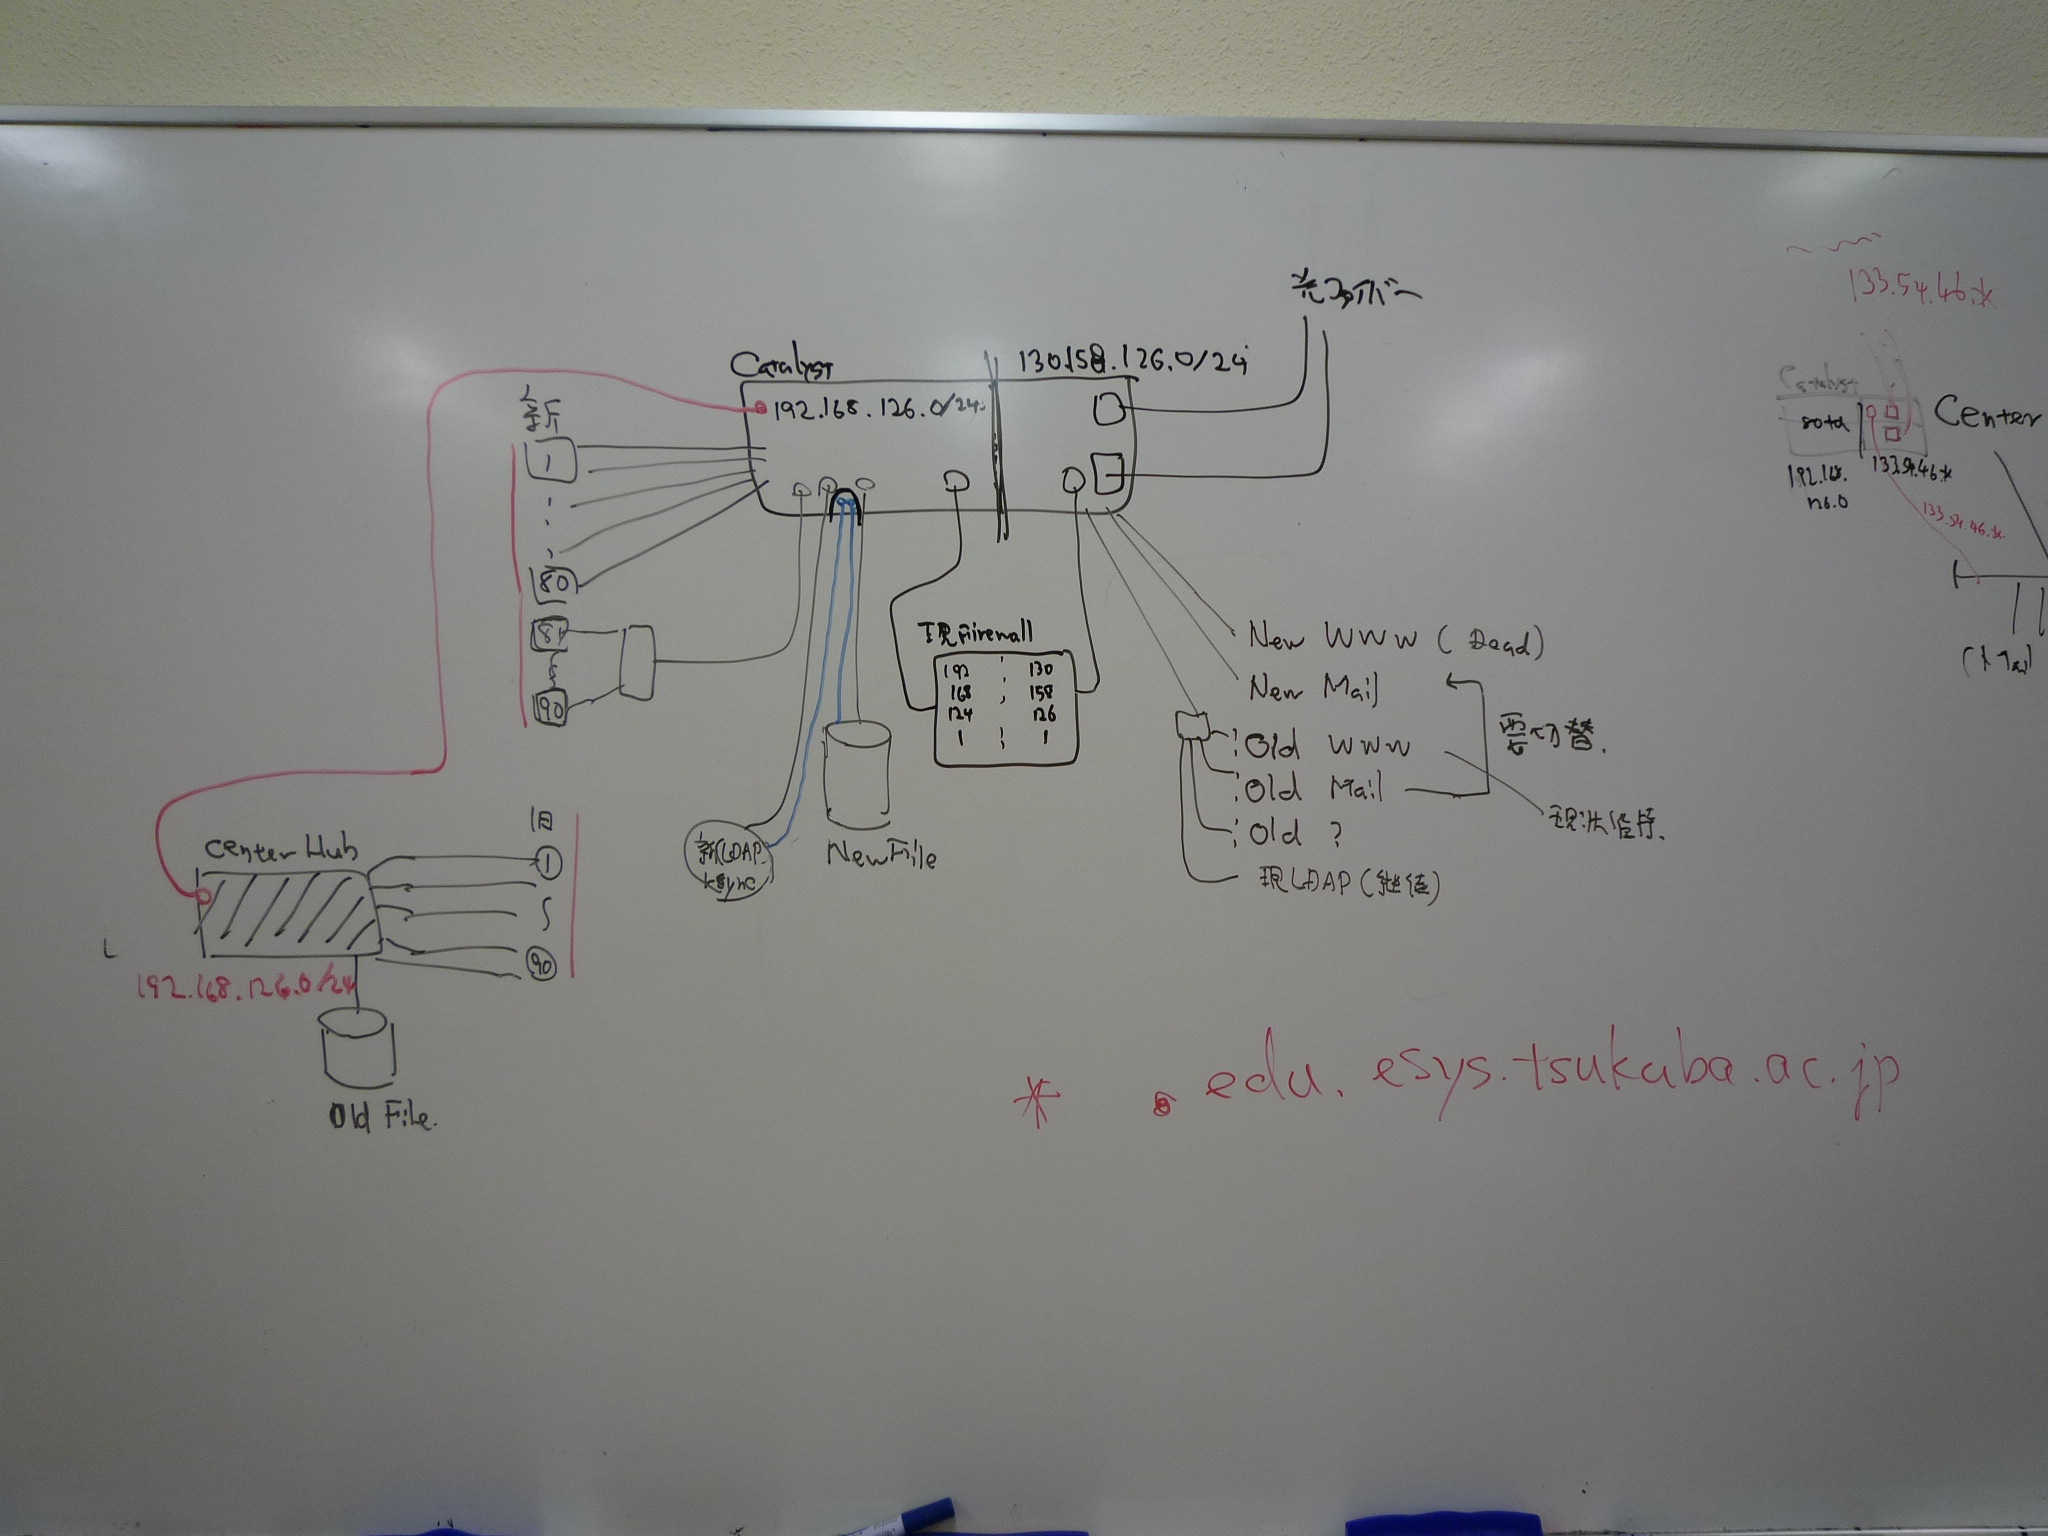 光ファイバー
Catalyst
130.158.126.0/24
192.168.126.0/24
新
1
80
81
90
現Firewall
192 130
168 158
124 126
1 1
New WWW (Dead)
New Mail
Old WWW
Old Mail
Old ?
現LDAP(継続)
要切替.
現状維持.
新LDAP
ksync
New File
旧
1
90
Center Hub
192.168.126.0/24
Old File.
* . edu. esys.tsukuba.ac.jp
133.54.46.*
Catalyst
Center
192.168.
126.0
133.54.46.*
133.54.46.*